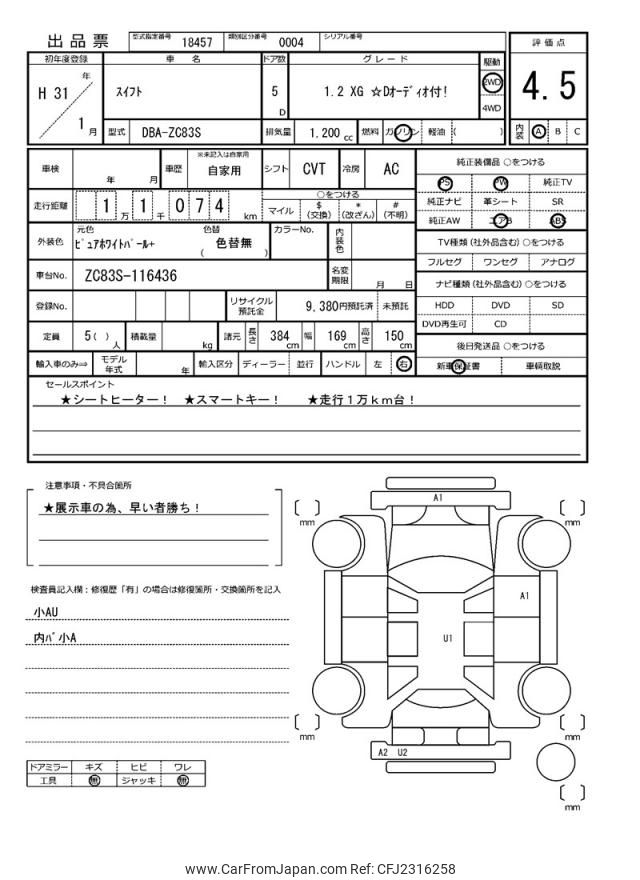 出品票 型式指定番号 18457 類別区分番号 0004 シリアル番号
評価点
初年度登録 車名 ドア数 グレード 駆動
H 31 年 1 月 スイフト 5 D 1.2 XG ☆Dオーディオ付! 2WD 4WD 4.5
型式 DBA-ZC83S 排気量 1.200 cc 燃料 ガソリン 軽油 ( ) 内装 A B C
車検 年 月 車歴 ※未記入は自家用 自家用 シフト CVT 冷房 AC 純正装備品 ○をつける
PS PW 純正TV
走行距離 1 万 1 千 0 7 4 km ○をつける 純正ナビ 革シート SR
マイル $ (交換) * (改ざん) # (不明) 純正AW エアB ABS
外装色 元色 ピュアホワイトパール+ 色替 ( 色替無 ) カラーNo. 内装色 TV種類 (社外品含む) ○をつける
フルセグ ワンセグ アナログ
車台No. ZC83S-116436 名変期限 月 日 ナビ種類 (社外品含む) ○をつける
登録No. リサイクル預託金 9,380円預託済 未預託 HDD DVD SD
DVD再生可 CD
定員 5 ( ) 人 積載量 kg 諸元 長さ 384 cm 幅 169 cm 高さ 150 cm 後日発送品 ○をつける
輸入車のみ⇒ モデル年式 年 輸入区分 ディーラー 並行 ハンドル 左 右 新車保証書 車輌取説
セールスポイント
★シートヒーター! ★スマートキー! ★走行1万km台!
注意事項・不具合箇所
★展示車の為、早い者勝ち!
検査員記入欄:修復歴「有」の場合は修復箇所・交換箇所を記入
小AU
内バ小A
A1
mm
mm
A1
U1
mm
mm
A2 U2
mm
ドアミラー キズ ヒビ ワレ
工具 無 ジャッキ 無
www.CarFromJapan.com Ref: CFJ2316258